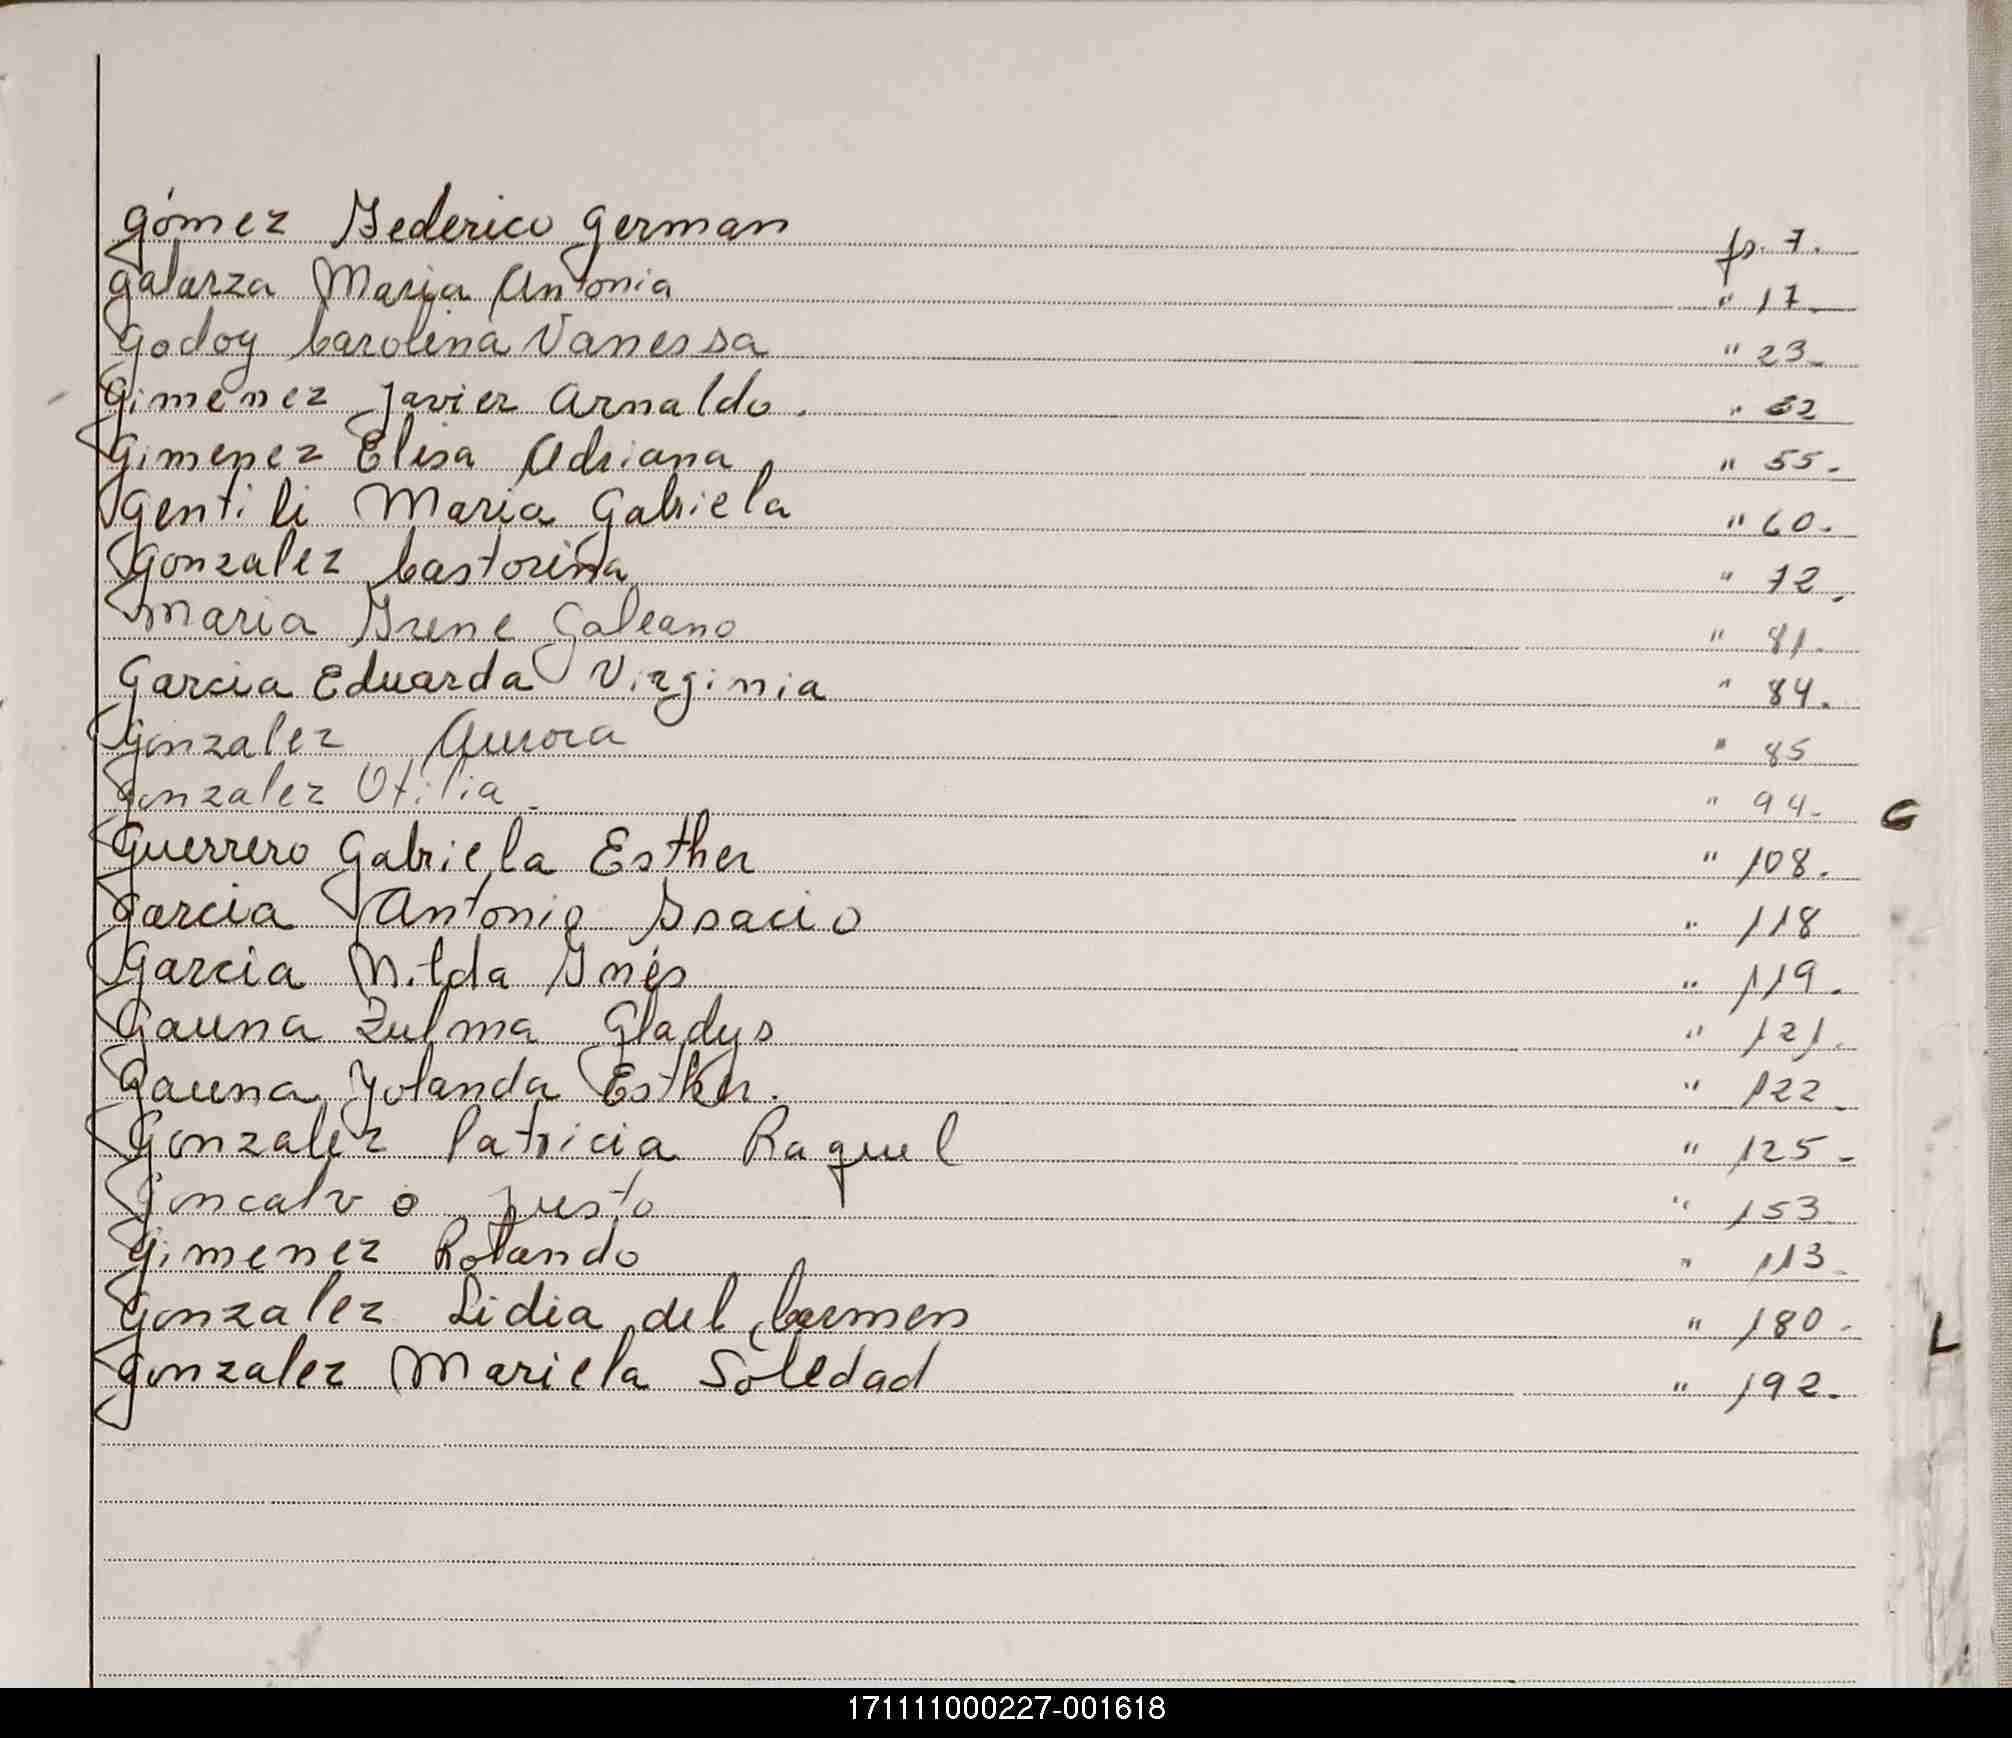 Gómez Federico German fs. 7.
Galarza Maria Antonia " 17
Godoy Carolina Vanessa " 23
Gimenez Javier Arnaldo. " 32
Gimenez Elisa Adriana " 55.
Gentili Maria Gabriela " 60.
Gonzalez Castorina " 72.
Maria Irene Galeano " 81.
Garcia Eduarda Virginia " 84.
Gonzalez Aurora " 85
Gonzalez Otilia. " 94.
G
Guerrero Gabriela Esther " 108.
Garcia Antonio Isacio " 118
Garcia Nilda Inés " 119.
Gauna Zulma Gladys " 121.
Gauna Yolanda Esther. " 122
Gonzalez Patricia Raquel " 125
Goncalvo Justo " 153
Gimenez Rolando " 113
Gonzalez Lidia del Carmen " 180.
L
Gonzalez Mariela Soledad " 192.
171111000227-001618